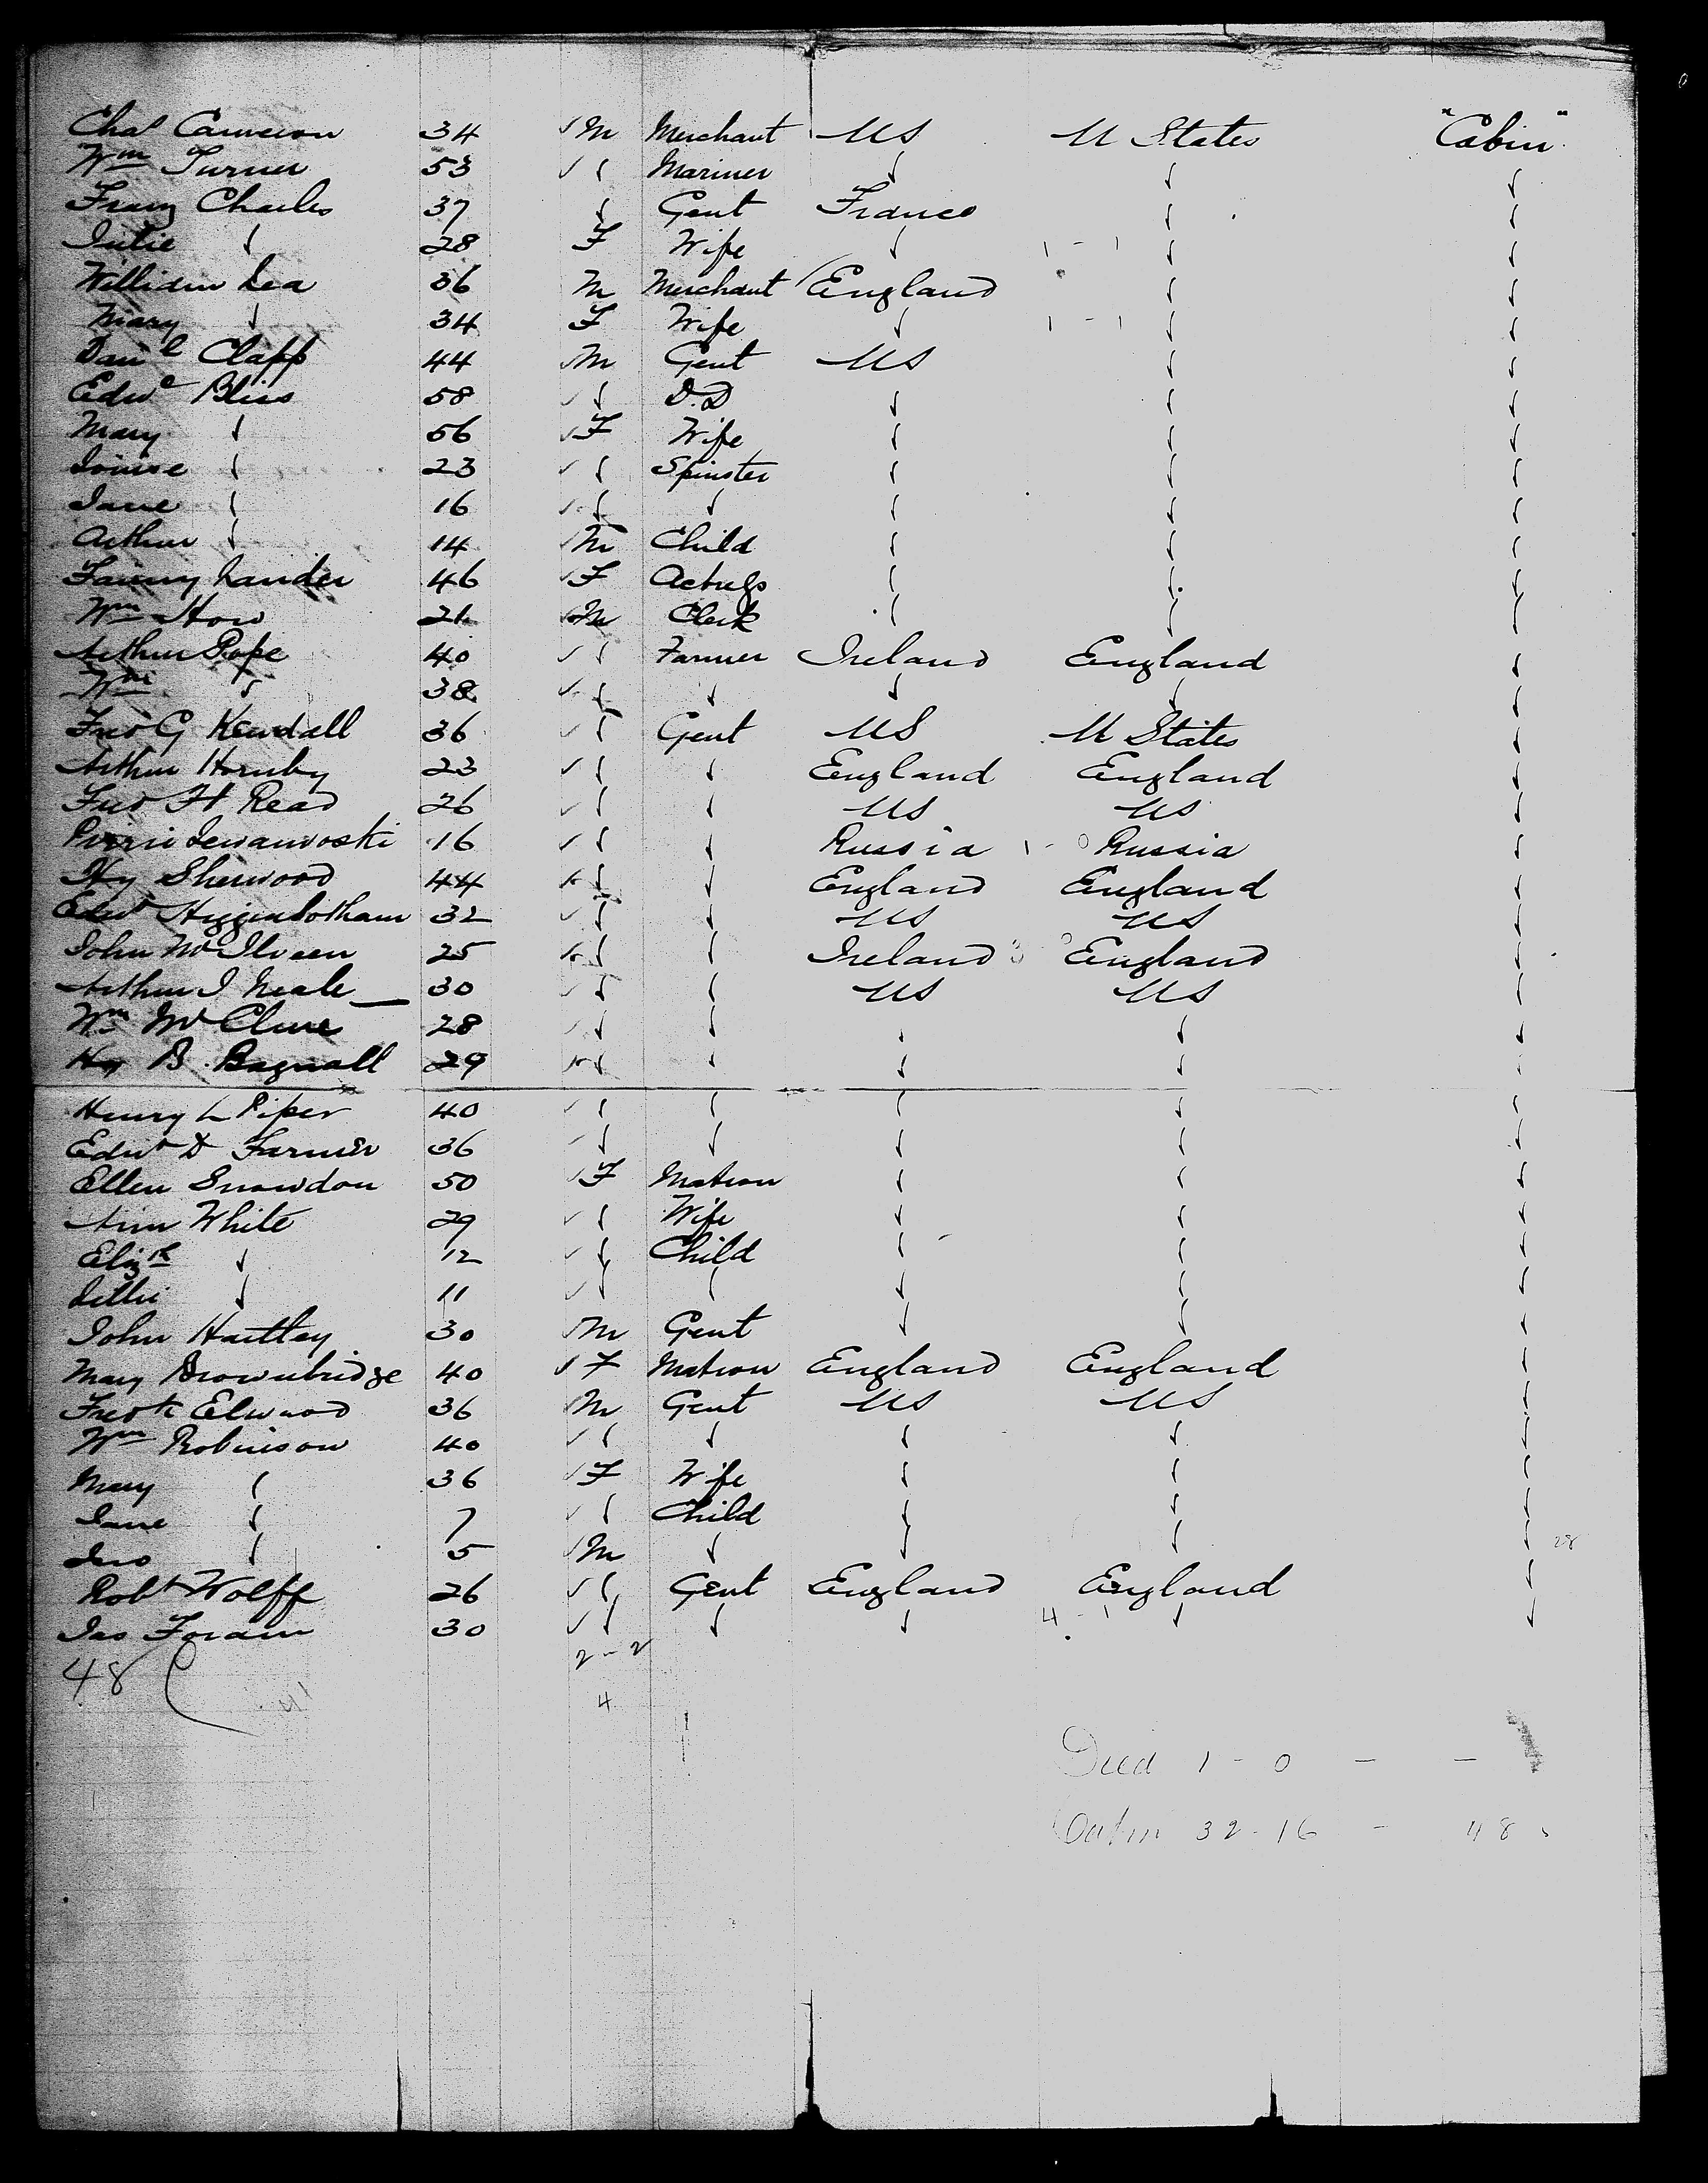 Chas Cameron 34 ✓ M Merchant US U States "Cabin"
Wm Turner 53 ✓ " Mariner " " "
Franz Charles 37 " Gent France " "
Julie " 28 F Wife " 1 - 1 " "
William Lea 36 M Merchant England " "
Mary " 34 F Wife " 1 - 1 " "
Danl Clapp 44 M Gent US " "
Edwd Bliss 58 ✓ " D.D " " "
Mary " 56 ✓ F Wife " " "
Louise " 23 ✓ " Spinster " " "
Jane " 16 ✓ " " " " "
Arthur " 14 ✓ M Child " " "
Fanny Lander 46 ✓ F Actress " " "
Wm How 21 ✓ M Clerk " " "
Arthur Pope 40 ✓ " Farmer Ireland England "
Wm " 38 ✓ " " " " "
Fred G Kendall 36 ✓ " Gent US U States "
Arthur Hornby 23 ✓ " " England England "
Fred H Read 26 ✓ " " US US "
16 ✓ " " Russia 1 - 0 Russia "
Hy Sherwood 44 ✓ " " England England "
Edwd Higginbotham 32 ✓ " " US US "
John McIlveen 25 ✓ " " Ireland England "
Arthur J Neale 30 ✓ " " US US "
Wm McClure 28 ✓ " " " " "
Hy B. Bagnall 29 ✓ " " " " "
Henry L Piper 40 ✓ " " " " "
Edwd D Farmer 36 ✓ " " " " "
Ellen Snowdon 50 ✓ F Matron " " "
Ann White 29 ✓ " Wife " " "
Elizth " 12 ✓ " Child " " "
Lillie " 11 ✓ " " " " "
John Hartley 30 ✓ M Gent " " "
Mary Brownbridge 40 ✓ F Matron England England "
Fredk Elwood 36 M Gent US US "
Wm Robinson 40 ✓ " " " " "
Mary " 36 ✓ F Wife " " "
Jane " 7 ✓ " Child " " "
Jno " 5 ✓ M " " " " 28
Robt Wolff 26 ✓ " Gent England England "
Jas Foram 30 ✓ " " " 4 - 1 " "
48 2 - 2
4
Died 1 - 0 - -
Cabin 32 - 16 - 48